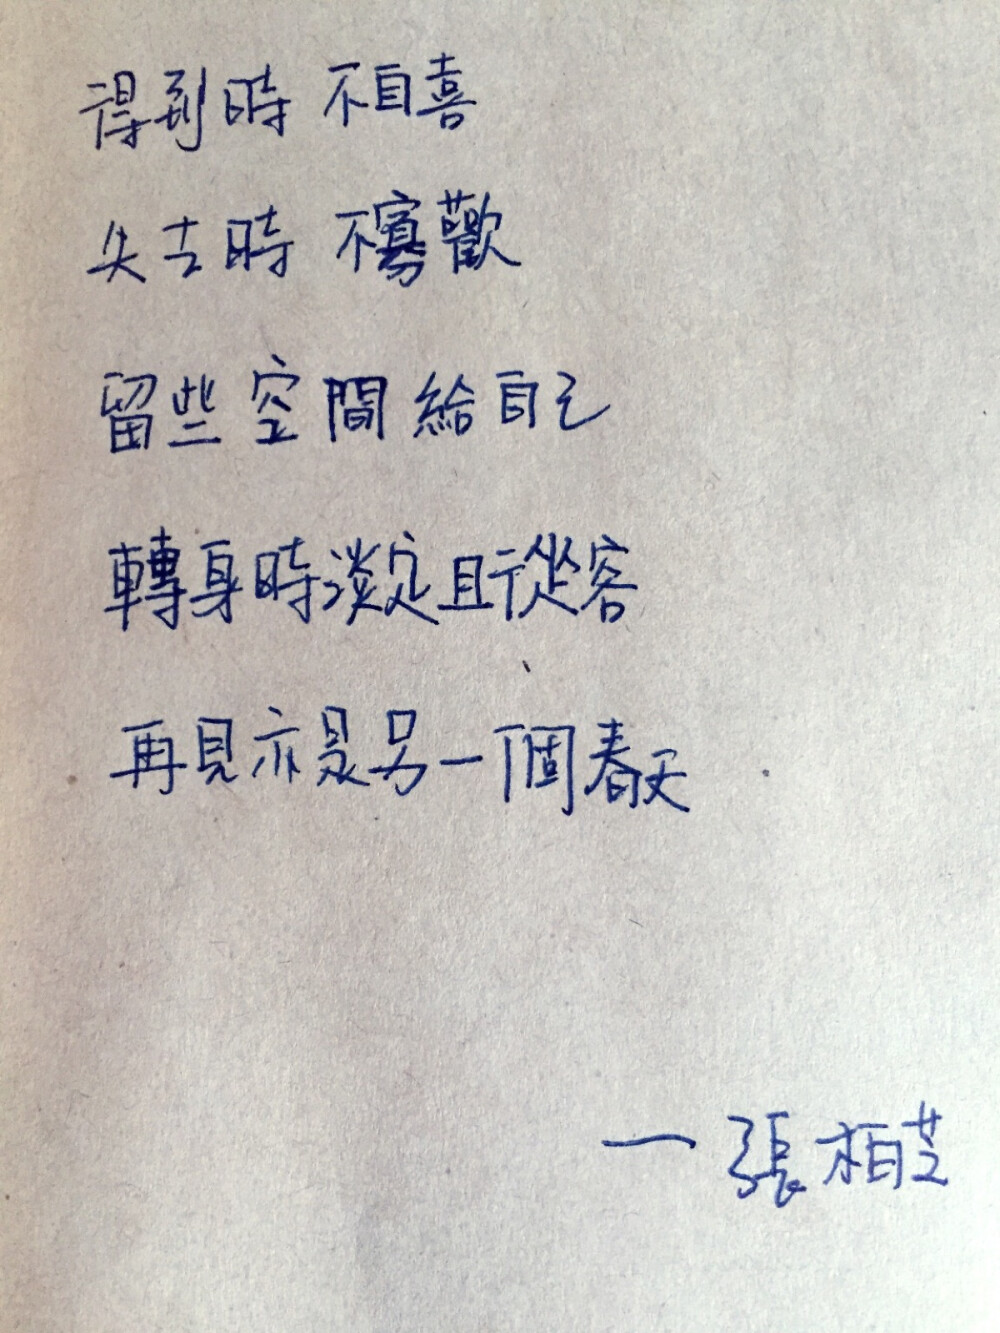 得到時 不自喜
失去時 不寡歡
留些空間給自己
轉身時淡定且從容
再見亦是另一個春天
— 張柏芝